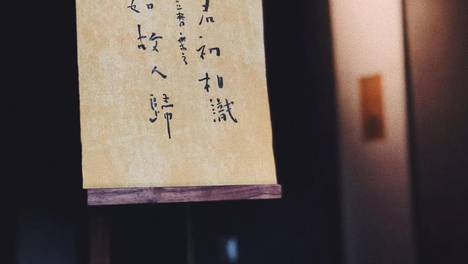 君初相識
如故人歸